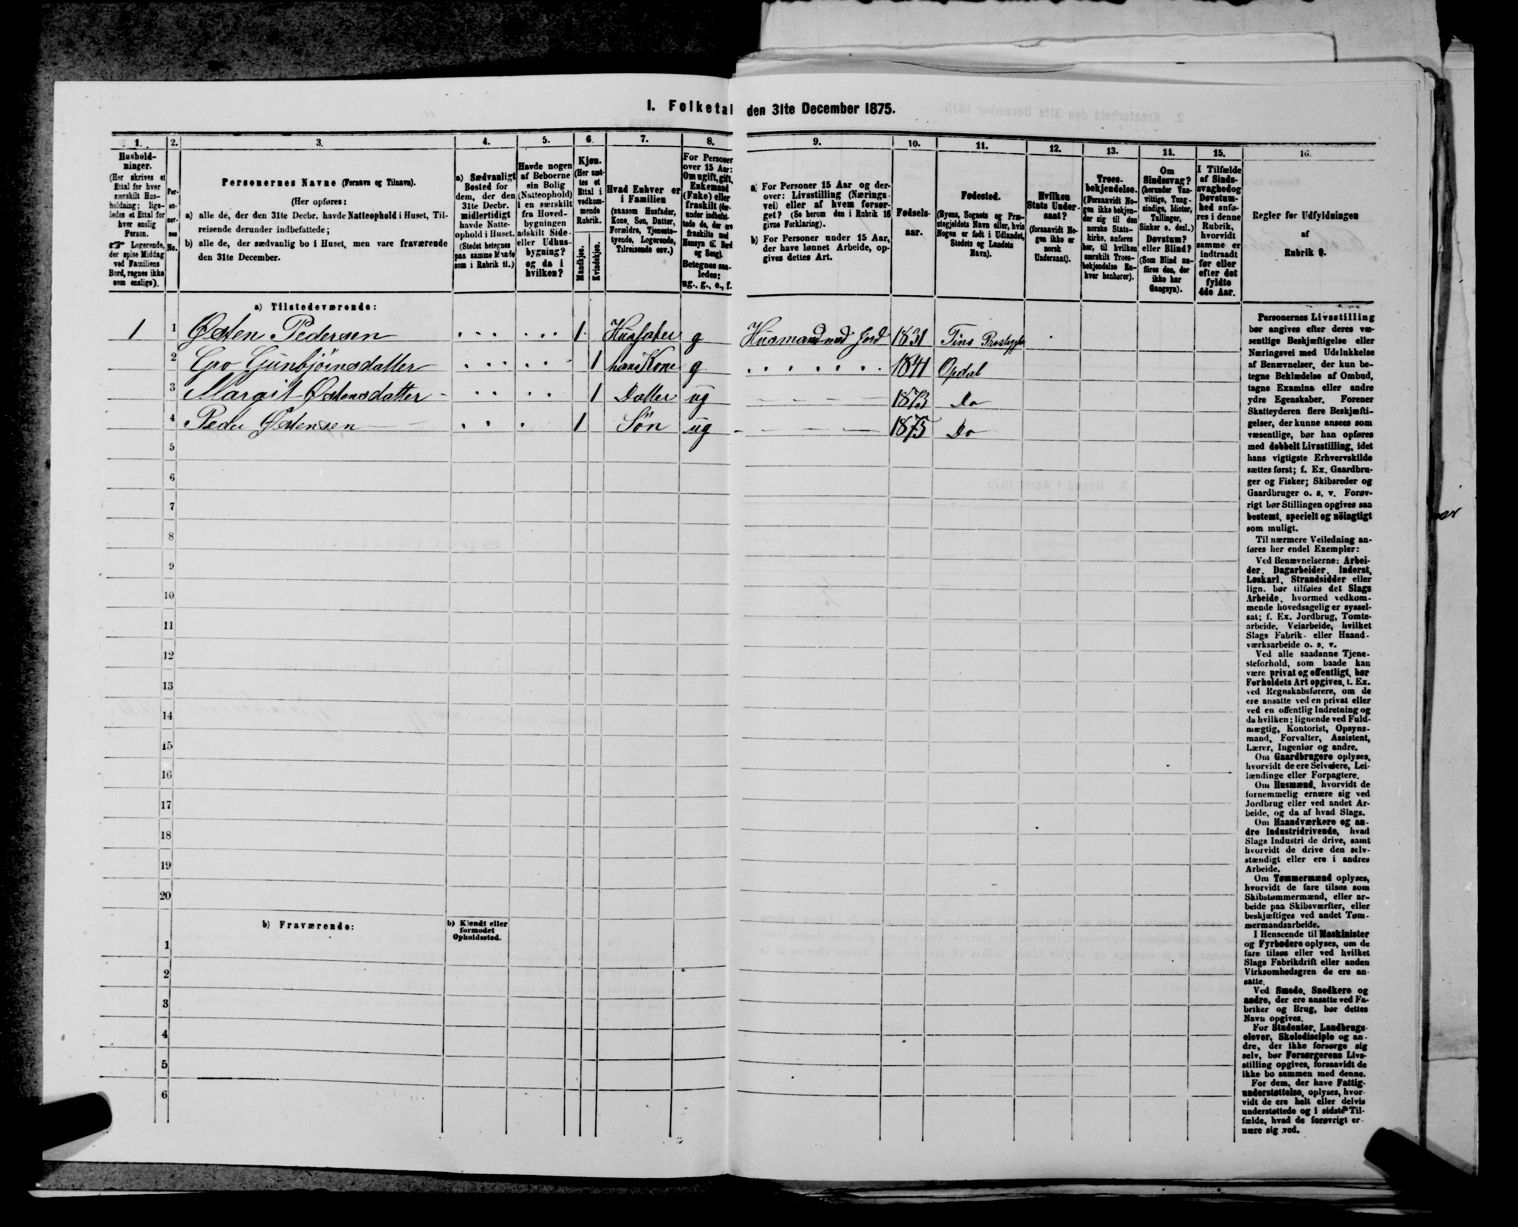 I. Folketal den 31te December 1875.
1. 2. 3. 4. 5. 6. 7. 8. 9. 10. 11. 12. 13. 14. 15. 16.
Hushold-
ninger.
(Her skrives et
Ettal for hver
særskilt Hus-
holdning; lige-
ledes et Ettal for
hver enslig
Person.
☞ Logerende,
der spise Middag
ved Familiens
Bord, regnes ikke
som enslige).
Per-
so-
ner-
nes
No.
Personernes Navne (Fornavn og Tilnavn).
(Her opføres:
a) alle de, der den 31te Decbr. havde Natteophold i Huset, Til-
reisende derunder indbefattede;
b) alle de, der sædvanlig bo i Huset, men vare fraværende
den 31te December.
a) Sædvanligt
Bosted for
dem, der den
31te Decbr.
midlertidigt
havde Natte-
ophold i Huset.
(Stedet betegnes
paa samme Maade
som i Rubrik 11.)
Havde nogen
af Beboerne
sin Bolig
(Natteophold)
i en særskilt
fra Hoved-
bygningen
adskilt Side-
eller Udhus-
bygning?
og da i
hvilken?
Kjøn.
(Her sæt-
tes et
Ettal i
vedkom-
mende
Rubrik.
Mandkjøn.
Kvindekjøn.
Hvad Enhver er
i Familien
(saasom Husfader,
Kone, Søn, Datter,
Forældre, Tjeneste-
tyende, Logerende,
Tilreisende osv.)
For Personer
over 15 Aar:
Om ugift, gift,
Enkemand
(Enke) eller
fraskilt (der-
under indbefat-
tede de, der ere
fraskilte med
Hensyn til Bord
og Seng).
Betegnes saa-
ledes:
ug., g., e., f.
a) For Personer 15 Aar og der-
over: Livsstilling (Nærings-
vei) eller af hvem forsør-
get? (Se herom den i Rubrik 16
givne Forklaring).
b) For Personer under 15 Aar,
der have lønnet Arbeide, op-
gives dettes Art.
Fødsels-
aar.
Fødested.
(Byens, Sognets og Præ-
stegjeldets Navn eller, hvis
Nogen er født i Udlandet,
Stedets og Landets
Navn).
Hvilken
Stats Under-
saat?
(forsaavidt No-
gen ikke er
norsk
Undersaat).
Troes-
bekjendelse.
(Forsaavidt No-
gen ikke bekjen-
der sig til den
norske Stats-
kirke, anføres
her, til hvilken
særskilt Troes-
bekjendelse En-
hver henhører).
Om
Sindssvag?
(herunder Van-
vittige, Tung-
sindige, Idioter,
Tullinger,
Sinker o. desl.)
Døvstum?
eller Blind?
(Som Blind an-
føres den, der
ikke har
Gangsyn).
I Tilfælde
af Sinds-
svaghed og
Døvstum-
hed anfø-
res i denne
Rubrik,
hvorvidt
samme er
indtraadt
før eller
efter det
fyldte
4de Aar.
Regler for Udfyldningen
af
Rubrik 9.
a) Tilstedeværende:
1 1 Østen Pedersen 1 Husfader g Husmand med Jord 1831 Tins Prestegj.
2 Gro Gunbjørnsdatter 1 hans Kone g 1841 Opdal
3 Margit Østensdatter 1 Datter ug 1873 Do
4 Peder Østensen 1 Søn ug 1875 Do
5
6
7
8
9
10
11
12
13
14
15
16
17
18
19
20
b) Fraværende:
b) Kjendt eller
formodet
Opholdssted.
1
2
3
4
5
6
Personernes Livsstilling
bør angives efter deres væ-
sentlige Beskjæftigelse eller
Næringsvei med Udelukkelse
af Benævnelser, der kun be-
tegne Beklædelse af Ombud,
tagne Examina eller andre
ydre Egenskaber. Forener
Skatteyderen flere Beskjæfti-
gelser, der kunne ansees som
væsentlige, bør han opføres
med dobbelt Livsstilling, idet
hans vigtigste Erhvervskilde
sættes først; f. Ex. Gaardbru-
ger og Fisker; Skibsreder og
Gaardbruger o. s. v. Forøv-
rigt bør Stillingen opgives saa
bestemt, specielt og nöiagtigt
som muligt.
Til nærmere Veiledning an-
føres her endel Exempler:
Ved Benævnelserne: Arbei-
der, Dagarbeider, Inderst,
Løskarl, Strandsidder eller
lign. bør tilføies det Slags
Arbeide, hvormed vedkom-
mende hovedsagelig er syssel-
sat; f. Ex. Jordbrug, Tomte-
arbeide, Veiarbeide, hvilket
Slags Fabrik- eller Haand-
værksarbeide o. s. v.
Ved alle saadanne Tjene-
steforhold, som baade kan
være privat og offentligt, bør
Forholdets Art opgives, t. Ex.
ved Regnskabsførere, om de
ere ansatte ved en privat eller
ved en offentlig Indretning og
da hvilken; lignende ved Fuld-
mægtig, Kontorist, Opsyns-
mand, Forvalter, Assistent,
Lærer, Ingeniør og andre.
Om Gaardbrugere oplyses,
hvorvidt de ere Selveiere, Lei-
lændinge eller Forpagtere.
Om Husmænd, hvorvidt de
fornemmelig ernære sig ved
Jordbrug eller ved andet Ar-
beide, og da af hvad Slags.
Om Haandværkere og an-
dre Industridrivende, hvad
Slags Industri de drive, samt
hvorvidt de drive den selv-
stændigt eller ere i andres
Arbeide.
Om Tømmermænd oplyses,
hvorvidt de fare tilsøs som
Skibstømmermænd, eller ar-
beide paa Skibsværfter, eller
beskjæftiges ved andet Tøm-
mermandsarbeide.
I Henseende til Maskinister
og Fyrbødere oplyses, om de
fare tilsøs eller ved hvilket
Slags Fabrikdrift eller anden
Virksomhedsgren de ere an-
satte.
Ved Smede, Snedkere og
andre, der ere ansatte ved Fa-
briker og Brug, bør dettes
Navn opgives.
For Studenter, Landbrugs-
elever, Skoledisciple og an-
dre, der ikke forsørge sig
selv, bør Forsørgerens Livs-
stilling opgives, forsaavidt de
ikke bo sammen med denne.
For dem, der have Fattig-
understøttelse, oplyses, hvor-
vidt de ere helt eller delvis
understøttede og i sidste Til-
fælde, hvad de forøvrigt er-
nære sig ved.